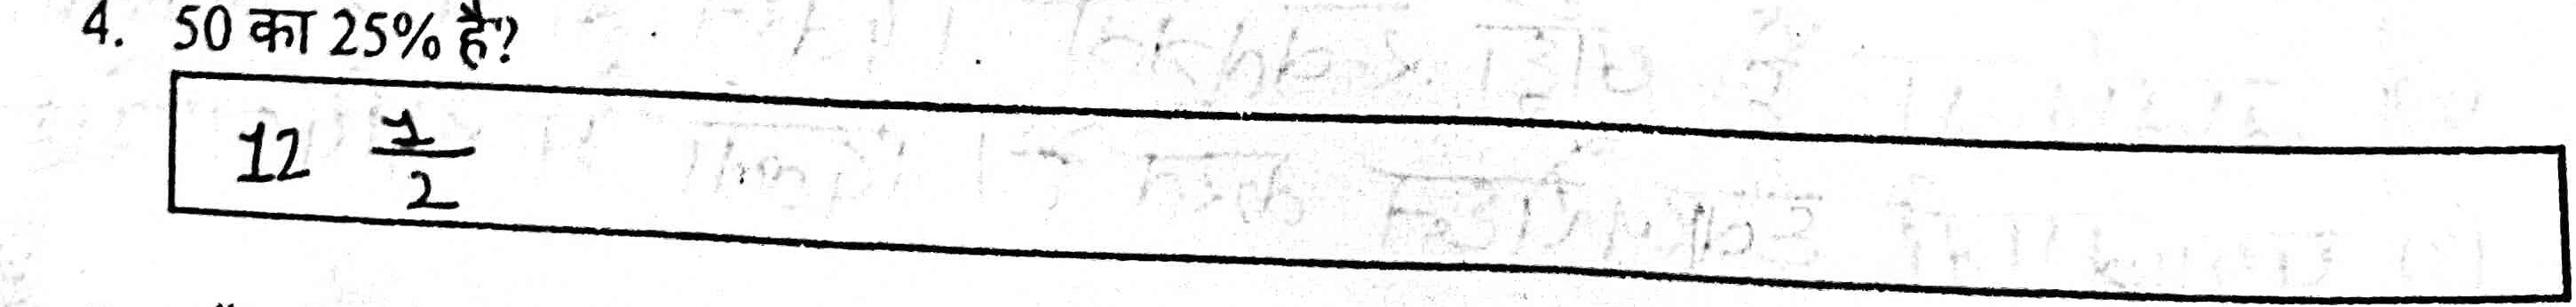 4. 50 का 25% है?
12 1/2